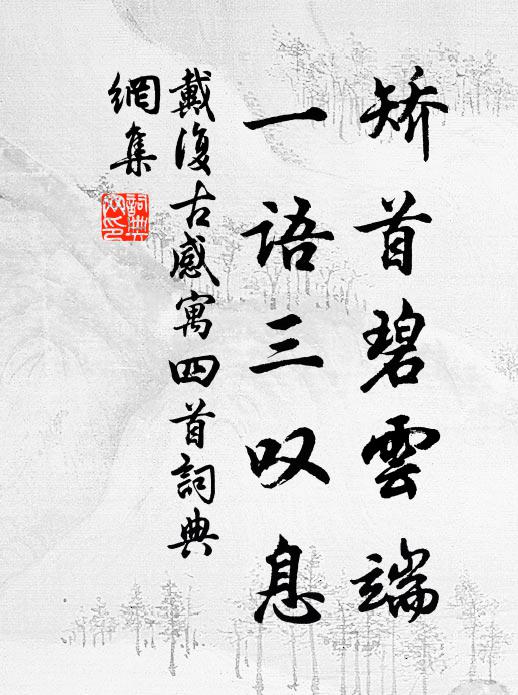 矫首碧雲端
一语三叹息
戴復古感寓四首詞典
網集
詞典
网印